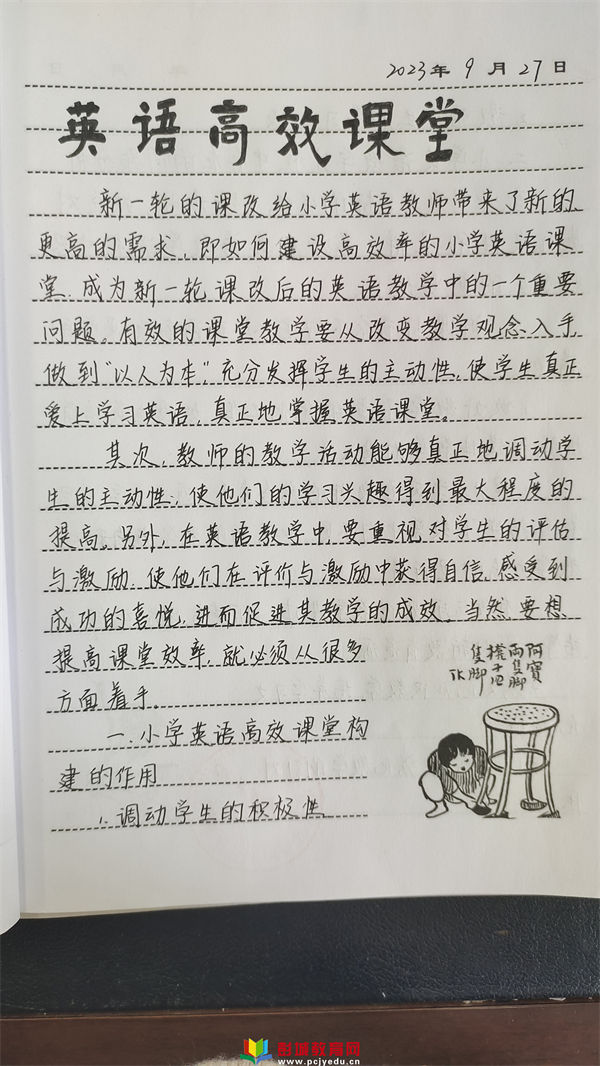 2023年9月27日
英语高效课堂
新一轮的课改给小学英语教师带来了新的、
更高的需求，即如何建设高效率的小学英语课
堂.成为新一轮课改后的英语教学中的一个重要
问题。有效的课堂教学要从改变教学观念入手
做到“以人为本”,充分发挥学生的主动性,使学生真正
爱上学习英语,真正地掌握英语课堂。
其次,教师的教学活动能够真正地调动学
生的主动性;,使他们的学习兴趣得到最大程度的
提高。另外,在英语教学中,要重视对学生的评估
与激励.使他们在评价与激励中获得自信,感受到
成功的喜悦,进而促进其教学的成效。当然,要想
提高课堂效率,就必须从很多
方面着手。
一.小学英语高效课堂构
建的作用
1.调动学生的积极性
阿寶
兩隻脚
櫈子四
隻脚
TK
彭城教育网
www.pcjyedu.cn